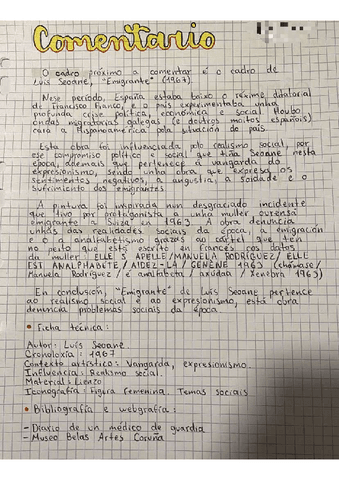 Comentario
O cadro próximo a comentar é o cadro de
Luís Seoane, "Emigrante" (1967).
Nese período, España estaba baixo o réxime ditatorial
de Francisco Franco, e o país experimentaba unha
profunda crise política, económica e social. Houbo
ondas migratorias galegas (e doutros moitos españois)
cara a Hispanoamérica pola situación do país.
Esta obra foi influenciada polo realismo social, por
ese compromiso político e social que tiña Seoane nesta
época, ademais que pertence á vangarda do
expresionismo, sendo unha obra que expresa os
sentimentos negativos, a angustia, a soidade e o
sufrimento dos emigrantes
A pintura foi inspirada nun desgraciado incidente
que tivo por protagonista a unha muller ourensá
emigrante a Suíza en 1963. A obra denuncia
unhas das realidades sociais da época, a emigración
e o a analfabetismo grazas ao cartel que ten
no peito que está escrito en francés cos datos
da muller: ELLE S'APELLE/MANUELA RODRÍGUEZ/ELLE
EST ANALPHABETE/AIDEZ-LA/GENÈNE 1963 (chámase/
Manuela Rodríguez/é analfabeta/axúdaa/Xenebra 1963)
En conclusión, "Emigrante" de Luís Seoane pertence
ao realismo social e ao expresionismo, está obra
denuncia problemas sociais da época
• Ficha técnica:
Autor: Luís Seoane.
Cronoloxía: 1967
Contexto artístico: Vangarda, expresionismo.
Influencia: Realismo social.
Material: Lienzo
Iconografía: Figura femenina. Temas sociais
• Bibliografía e webgrafía:
- Diario de un médico de guardia
- Museo Belas Artes Coruña